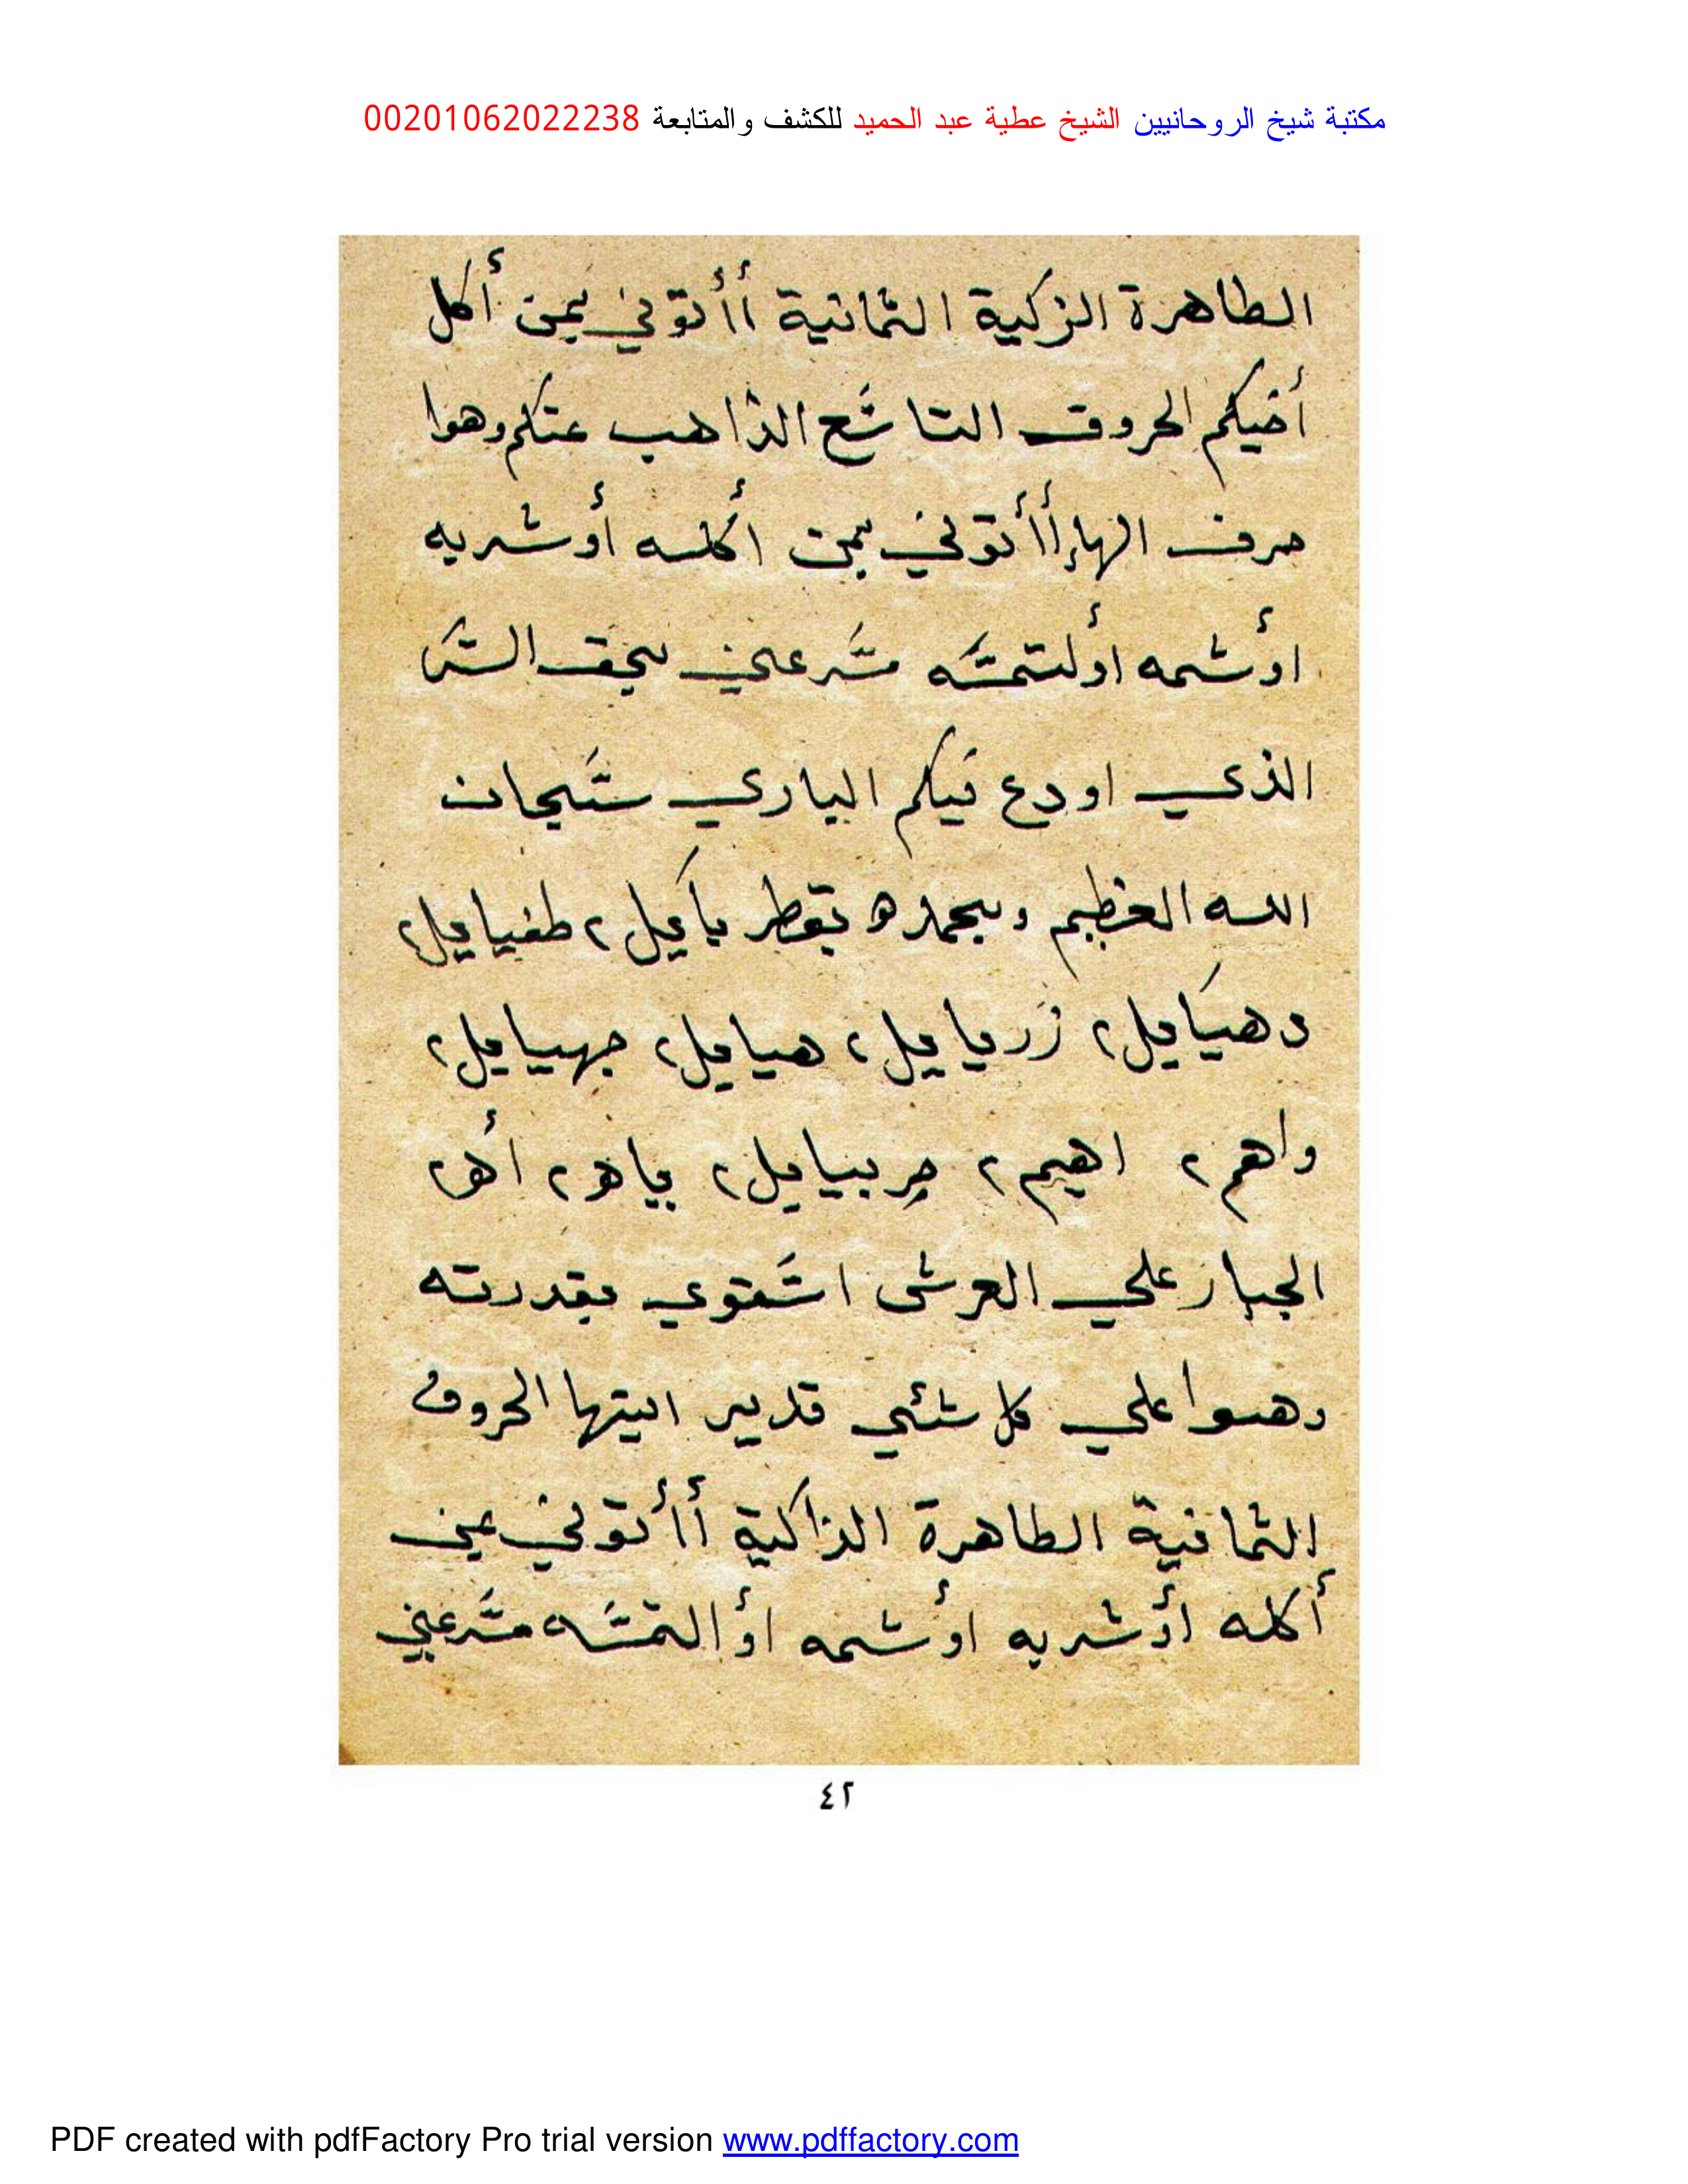 مكتبة شيخ الروحانيين الشيخ عطية عبد الحميد للكشف والمتابعة 00201062022238
الطاهرة الزكية الثمانية أأتوني بمن أكل
أخيكم الحروف التاسع الذاهب عنكم وهوا
حرف الهاء أأتوني بمن أكله أوشربه
أوشمه أولتمسه مسرعين بحق السر
الذي اودع فيكم الباري سبحان
الله العظيم وبحمده بقطريأيل ٢ طفيايل ٢
دهيايل ٢ زريايل ٢ هيايل ٢ جهيايل ٢
واهم ٢ اهيم ٢ جربيايل ٢ ياهو ٢ أه ٢
الجبار علي العرش استوي بقدرته
وهوا علي كل شئي قدير ايتها الحروف
الثمانية الطاهرة الذاكية أأتوني بمن
أكله أوشربه أوشمه أوالتمسه مسرعين
٤٢
PDF created with pdfFactory Pro trial version www.pdffactory.com